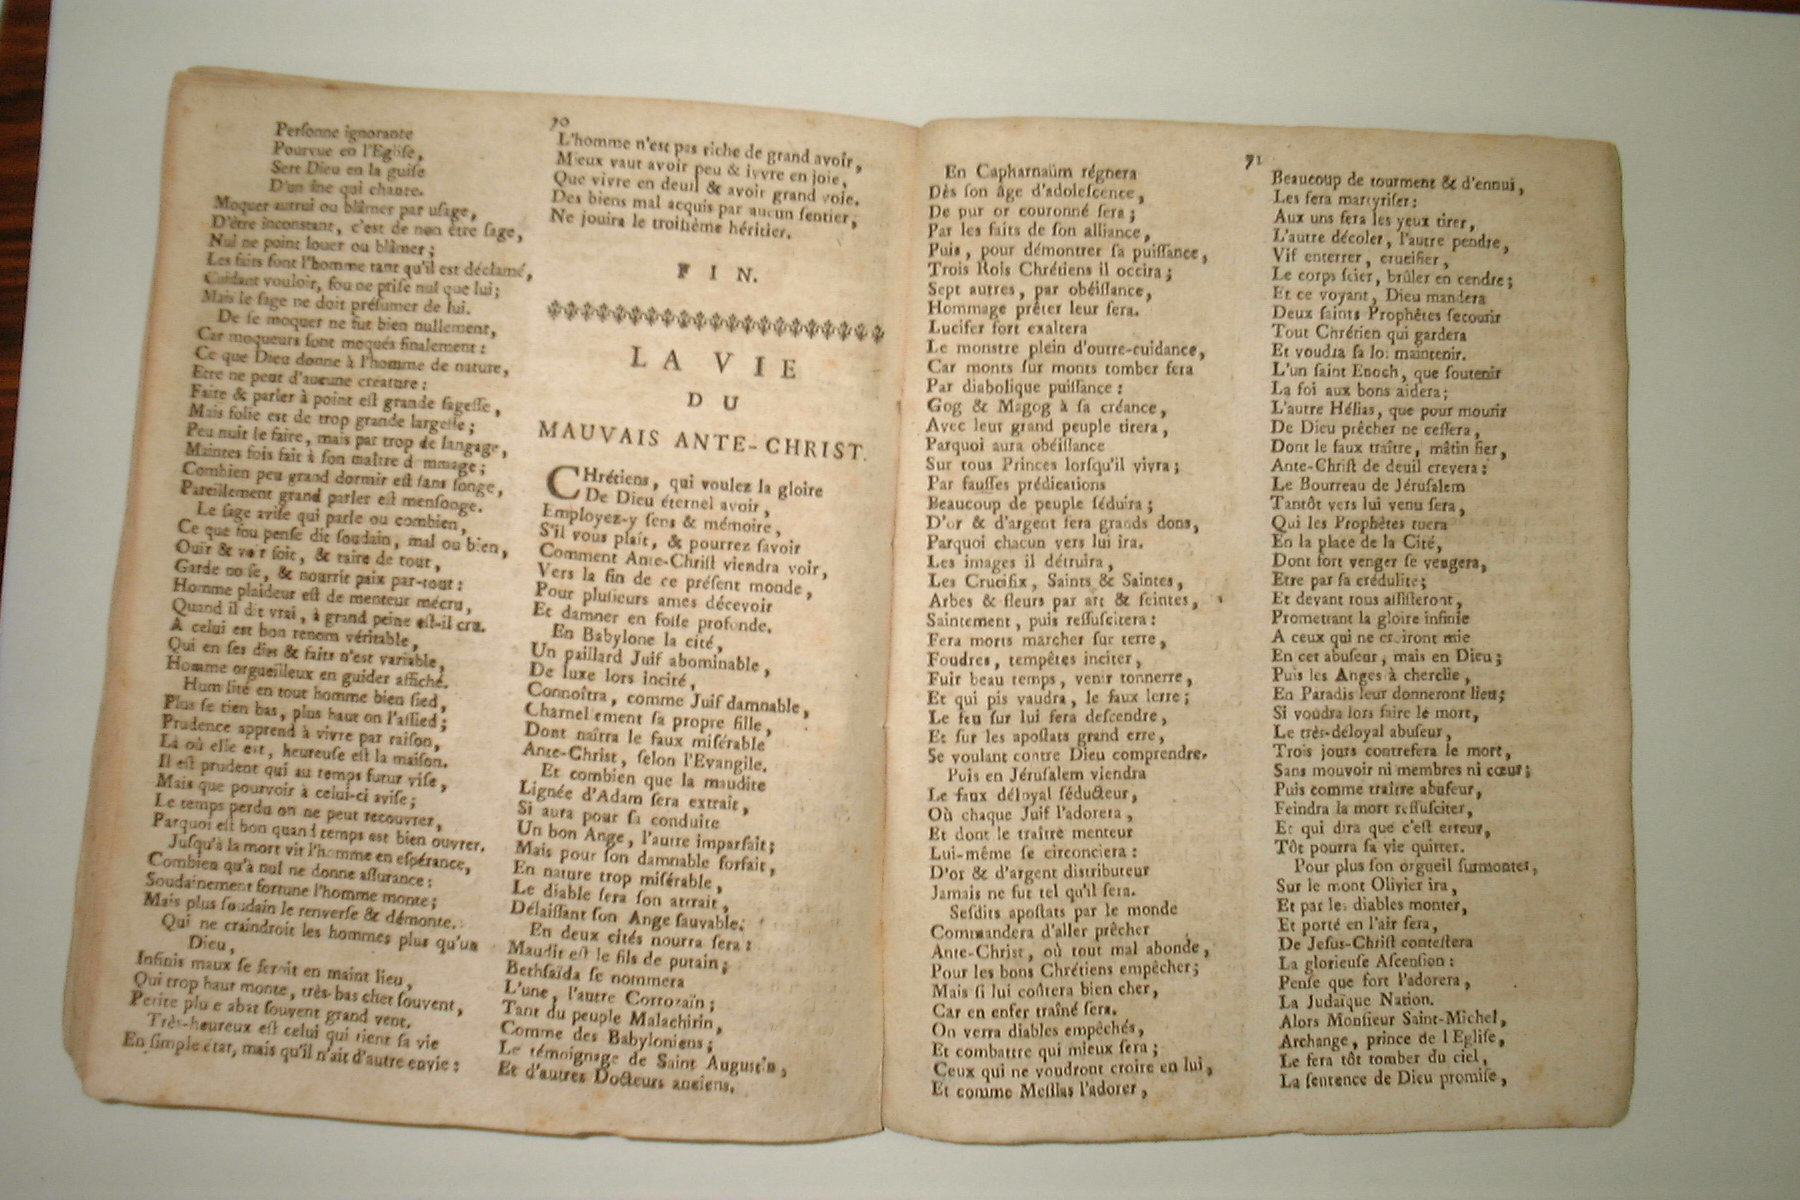 70
Personne ignorante
Pourvue en l'Eglise,
Sert Dieu en la guise
D'un âne qui chante.
Moquer autrui ou blâmer par usage,
D'être inconstant, c'est de non être sage,
Nul ne point louer ou blâmer ;
Les faits font l'homme tant qu'il est déclamé,
Cuidant vouloir, fou ne prise nul que lui ;
Mais le sage ne doit présumer de lui.
De se moquer ne fut bien nullement,
Car moqueurs sont moqués finalement :
Ce que Dieu donne à l'homme de nature,
Etre ne peut d'aucune créature :
Faire & parler à point est grande sagesse,
Mais folie est de trop grande largesse ;
Peu nuit le faire, mais par trop de langage,
Maintes fois fait à son maître dommage ;
Combien peu grand dormir est sans songe,
Pareillement grand parler est mensonge.
Le sage avise qui parle ou combien,
Ce que fou pense dit soudain, mal ou bien,
Ouir & voir soit, & taire de tout,
Garde noise, & nourrit paix par-tout :
Homme plaideur est de menteur mécru,
Quand il dit vrai, à grand peine est-il cru.
A celui est bon renom véritable,
Qui en ses dits & faits n'est variable,
Homme orgueilleux en guider affiché.
Humilité en tout homme bien sied,
Plus se tien bas, plus haut on l'assied ;
Prudence apprend à vivre par raison,
Là où elle est, heureuse est la maison.
Il est prudent qui au temps futur vise,
Mais que pourvoir à celui-ci avise ;
Le temps perdu on ne peut recouvrer,
Parquoi est bon quand temps est bien ouvrer.
Jusqu'à la mort vit l'homme en espérance,
Combien qu'à nul ne donne assurance :
Soudainement fortune l'homme monte ;
Mais plus soudain le renverse & démonte.
Qui ne craindroit les hommes plus qu'un
Dieu,
Infinis maux se feroit en maint lieu,
Qui trop haut monte, très-bas chet souvent,
Petite pluie abat souvent grand vent.
Très-heureux est celui qui tient sa vie
En simple état, mais qu'il n'ait d'autre envie :
L'homme n'est pas riche de grand avoir,
Mieux vaut avoir peu & ivvre en joie,
Que vivre en deuil & avoir grand voie.
Des biens mal acquis par aucun sentier,
Ne jouira le troisième héritier.
F I N.
LA VIE
DU
MAUVAIS ANTE-CHRIST.
CHrétiens, qui voulez la gloire
De Dieu éternel avoir,
Employez-y sens & mémoire,
S'il vous plait, & pourrez savoir
Comment Ante-Christ viendra voir,
Vers la fin de ce présent monde,
Pour plusieurs ames décevoir
Et damner en fosse profonde.
En Babylone la cité,
Un paillard Juif abominable,
De luxe lors incité,
Connoîtra, comme Juif damnable,
Charnellement sa propre fille,
Dont naîtra le faux misérable
Ante-Christ, selon l'Evangile.
Et combien que la maudite
Lignée d'Adam sera extrait,
Si aura pour sa conduite
Un bon Ange, l'autre imparfait ;
Mais pour son damnable forfait,
En nature trop misérable,
Le diable sera son attrait,
Délaissant son Ange sauvable.
En deux cités nourra sera :
Maudit est le fils de putain ;
Bethsaïda se nommera
L'une, l'autre Corrozaïn ;
Tant du peuple Malachirin,
Comme des Babyloniens ;
Le témoignage de Saint Augustin,
Et d'autres Docteurs anciens.
71
En Capharnaüm régnera
Dès son âge d'adolescence,
De pur or couronné sera ;
Par les faits de son alliance,
Puis, pour démontrer sa puissance,
Trois Rois Chrétiens il occira ;
Sept autres, par obéissance,
Hommage prêter leur fera.
Lucifer fort exaltera
Le monstre plein d'outre-cuidance,
Car monts sur monts tomber fera
Par diabolique puissance :
Gog & Magog à sa créance,
Avec leur grand peuple tirera,
Parquoi aura obéissance
Sur tous Princes lorsqu'il vivra ;
Par fausses prédications
Beaucoup de peuple séduira ;
D'or & d'argent fera grands dons,
Parquoi chacun vers lui ira.
Les images il détruira,
Les Crucifix, Saints & Saintes,
Arbes & fleurs par art & feintes,
Saintement, puis ressuscitera :
Fera morts marcher sur terre,
Foudres, tempêtes inciter,
Fuir beau temps, venir tonnerre,
Et qui pis vaudra, le faux lerre ;
Le feu sur lui fera descendre,
Et sur les apostats grand erre,
Se voulant contre Dieu comprendre.
Puis en Jérusalem viendra
Le faux déloyal séducteur,
Où chaque Juif l'adorera,
Et dont le traître menteur
Lui-même se circonciera :
D'or & d'argent distributeur
Jamais ne fut tel qu'il sera.
Sesdits apostats par le monde
Commandera d'aller prêcher
Ante-Christ, où tout mal abonde,
Pour les bons Chrétiens empêcher ;
Mais si lui coûtera bien cher,
Car en enfer traîné sera.
On verra diables empêchés,
Et combattre qui mieux fera ;
Ceux qui ne voudront croire en lui,
Et comme Messias l'adorer,
Beaucoup de tourment & d'ennui,
Les fera martyriser :
Aux uns fera les yeux tirer,
L'autre décoler, l'autre pendre,
Vif enterrer, crucifier,
Le corps scier, brûler en cendre ;
Et ce voyant, Dieu mandera
Deux saints Prophêtes secourir
Tout Chrétien qui gardera
Et voudra sa loi maintenir.
L'un saint Enoch, que soutenir
La foi aux bons aidera ;
L'autre Hélias, que pour mourir
De Dieu prêcher ne cessera,
Dont le faux traître, mâtin fier,
Ante-Christ de deuil crevera :
Le Bourreau de Jérusalem
Tantôt vers lui venu sera,
Qui les Prophêtes tuera
En la place de la Cité,
Dont fort venger se vengera,
Etre par sa crédulité ;
Et devant tous assisteront,
Promettant la gloire infinie
A ceux qui ne croiront mie
En cet abuseur, mais en Dieu ;
Puis les Anges à cherclie,
En Paradis leur donneront lieu ;
Si voudra lors faire le mort,
Le très-déloyal abuseur,
Trois jours contrefera le mort,
Sans mouvoir ni membres ni cœur ;
Puis comme traître abuseur,
Feindra la mort ressusciter,
Et qui dira que c'est erreur,
Tôt pourra sa vie quitter.
Pour plus son orgueil surmonter,
Sur le mont Olivier ira,
Et par les diables monter,
Et porté en l'air sera,
De Jesus-Christ contestera
La glorieuse Ascension :
Pense que fort l'adorera,
La Judaïque Nation.
Alors Monsieur Saint-Michel,
Archange, prince de l'Eglise,
Le fera tôt tomber du ciel,
La sentence de Dieu promise,